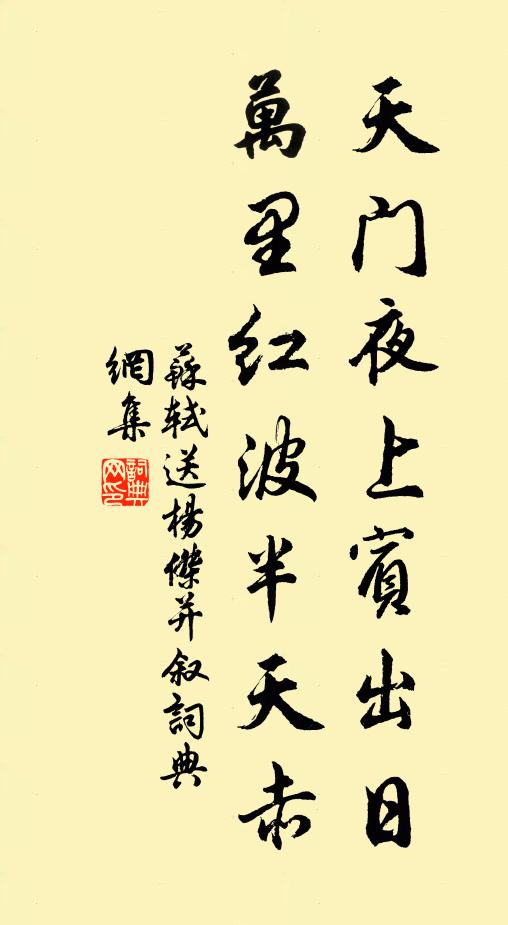 天门夜上賓出日
萬里红波半天赤
蘇轼送楊傑并叙詞典
網集
詞典
网印